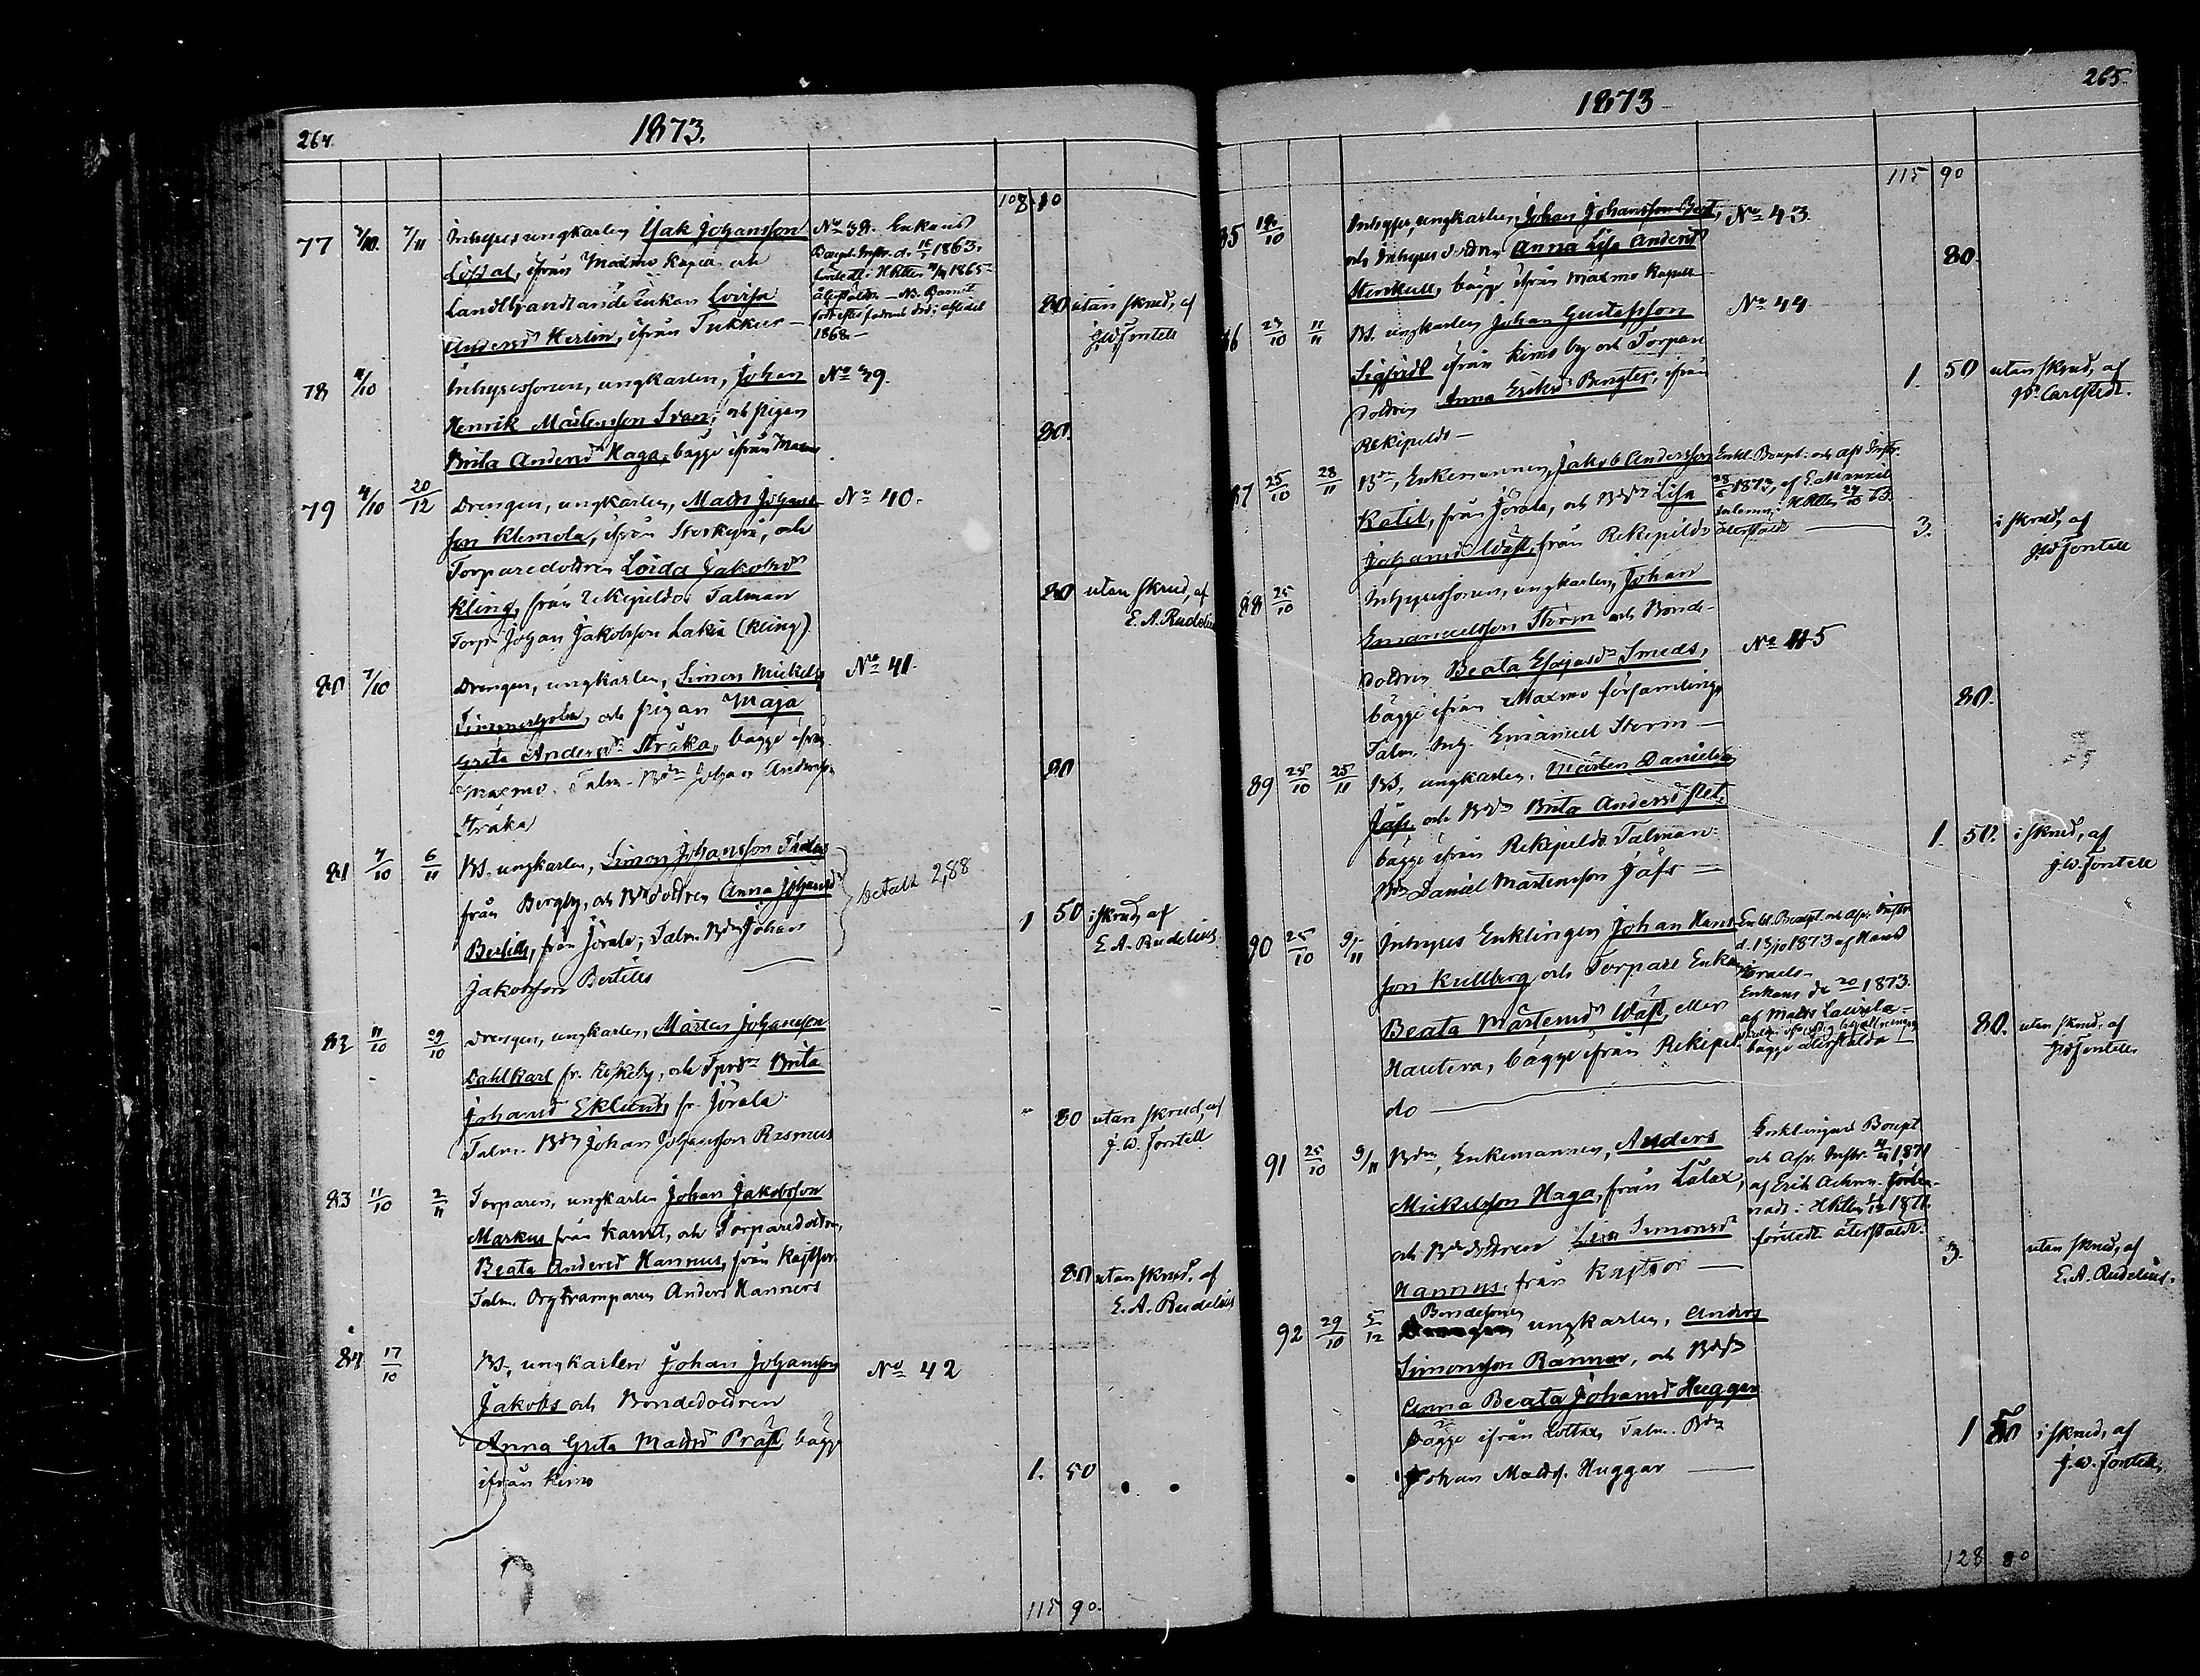 264.
1873.
108 40
77 7/11 Inhyses ungkarlen Isak Johansson
Löfdal, ifrån Maxmo Kapell och
Landtbondlande Enkan Lovisa
Andersd Herlin, ifrån Tukkur —
No 38. Enkans
Boupt. Instr. d. 1863,
1865
återstälde. — NB. Barnet
1868 —
80 utan skrud, af
J. W. Fontell
78 /10 Inhysessonen, ungkarlen, Johan
Henrik Mårtensson Svan, och pigan
Brita Andersdr Haga, bägge ifrån Maxmo
No 39.
80.
79 4/10 20/12 Drengen, ungkarlen, Mads Johans
son Klemola, ifrån Storkyrö, och
Torparedottren Loida Jakobsdr
Kling, från Rekipeldo. Talman
Torp. Johan Jakobsson Lakia (Kling)
No 40.
80 utan skrud, af
E. A. Rudelius
80 7/10 Drengen, ungkarlen, Simon Mickelss
och pigan Maja
Greta Andersdr Stråka, bägge ifrån
Maxmo. Talm. Bdn Johan Andersson
Stråka
No 41.
80
81 7/10 6/11 BS. ungkarlen, Simon Johansson
från Bergby, och Bdedottren Anna Johansd
Bertills, från Jörala; Talm. Bdn Johan
Jakobsson Bertills
betalt 2,88
1 50 i skrud, af
E. A. Rudelius
82 11/10 29/10 Drengen, ungkarlen, Mårten Johansson
Dahlkarl fr. Kiskeby, och Tprdr Brita
Johansd Eklund, fr. Jörala.
Talm. Bdn Johan Johansson Rasmus
" 80 utan skrud, af
J. W. Fontell
83 11/10 2/11 Torparen, ungkarlen Johan Jakobsson
Markus från Karvat, och Torparedottren,
Beata Andersd Hannus, från Kaitsor.
Talm. Orgtramparen Anders Hannus
80 utan skrud, af
E. A. Rudelius
84 17/10 BS., ungkarlen Johan Johansson
Jakobs och Bondedottren
Anna Greta Madsdr Präst, bägge
ifrån Kimo
No 42
1. 50
115 90.
265.
1873
115 90
85 /10 Inhyses, ungkarlen, Johan Johansson Bort,
och Inhyses dottren Anna Lisa Andersdr
Stenkull, bägge ifrån Maxmo Kapell
No 43.
80.
86 23/10 11/11 BS. ungkarlen Johan Gustafsson
Sigfrids ifrån Kimo by och Torpare
dottren Anna Ericsdr Bengter, ifrån
Rekipeldo —
No 44
1. 50 utan skrud, af
Carlstedt.
87 25/10 23/11 Bdn, Enkemannen, Jakob Andersson
Katil, från Jörala, och Bdsdr Lisa
Johansd Wäst, från Rekipeldo
Enkl. Boupt. och afst. Instr.
1873, af
återstäldt
3. i skrud, af
J W Fontell
88 25/10 Inhysessonen, ungkarlen, Johan
Emanuelsson Storm och Bonde-
dottren Beata Esajasdr Smeds,
bägge ifrån Maxmo församling,
Talm. Inh. Emanuel Storm —
No 45
80.
89 25/10 25/11 BS. ungkarlen. Mårten Danielss
Jåfs. och Bdsdr Brita Andersd
bägge ifrån Rekipeldo. Talman:
Bdn Daniel Mårtensson Jåfs —
1. 50. i skrud, af
J. W. Fontell
90 25/10 9/11 Inhyses Enklingen Johan Hans
son Kullberg och Torpare Enkan
Beata Mårtensdr Wäst, eller
Hautera, bägge ifrån Rekipel
do
Enkl. Boupt. och afst. Instr.
d. 13/10 1873 af Hans
Israels —
Enkans de 1873.
af Mats Laurila —
bägge återstälda —
80. utan skrud, af
J W Fontell
91 25/10 9/11 Bdn, Enkemannen, Anders
Mickelsson Haga, från Lålax,
och Bdedottren Lisa Simonsdr
Hannus, från Kaitsor —
Enklingens Boupt
och Afst. Instr. 1871
af Erik
1871.
företedt. återstäldt.
3. utan skrud, af
E. A. Rudelius.
92 29/10 5/12 Bondesonen ungkarlen, Anders
Simonsson Rannar, och Bdsdr
Anna Beata Johansd Huggar
bägge ifrån Lottax, Talm. Bdn
Johan Madss. Huggar —
1 50 i skrud, af
J. W. Fontell,
128 80